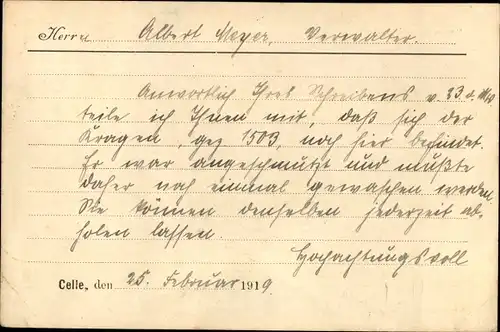 Herrn Albert Meyer, Verwalter.
Antwortlich Ihres Schreibens v. 23. d. Mts
teile ich Ihnen mit, daß sich der
Kragen, gez 1503, noch hier befindet.
Er war angeschmutzt und mußte
daher noch einmal gewaschen werden.
Sie können denselben jederzeit ab-
holen lassen.
Hochachtungsvoll
Celle, den 25. Februar 1919